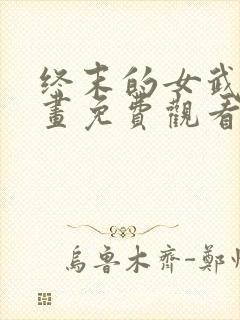 终末的女武
畫免費觀看
烏魯木齊-鄭州